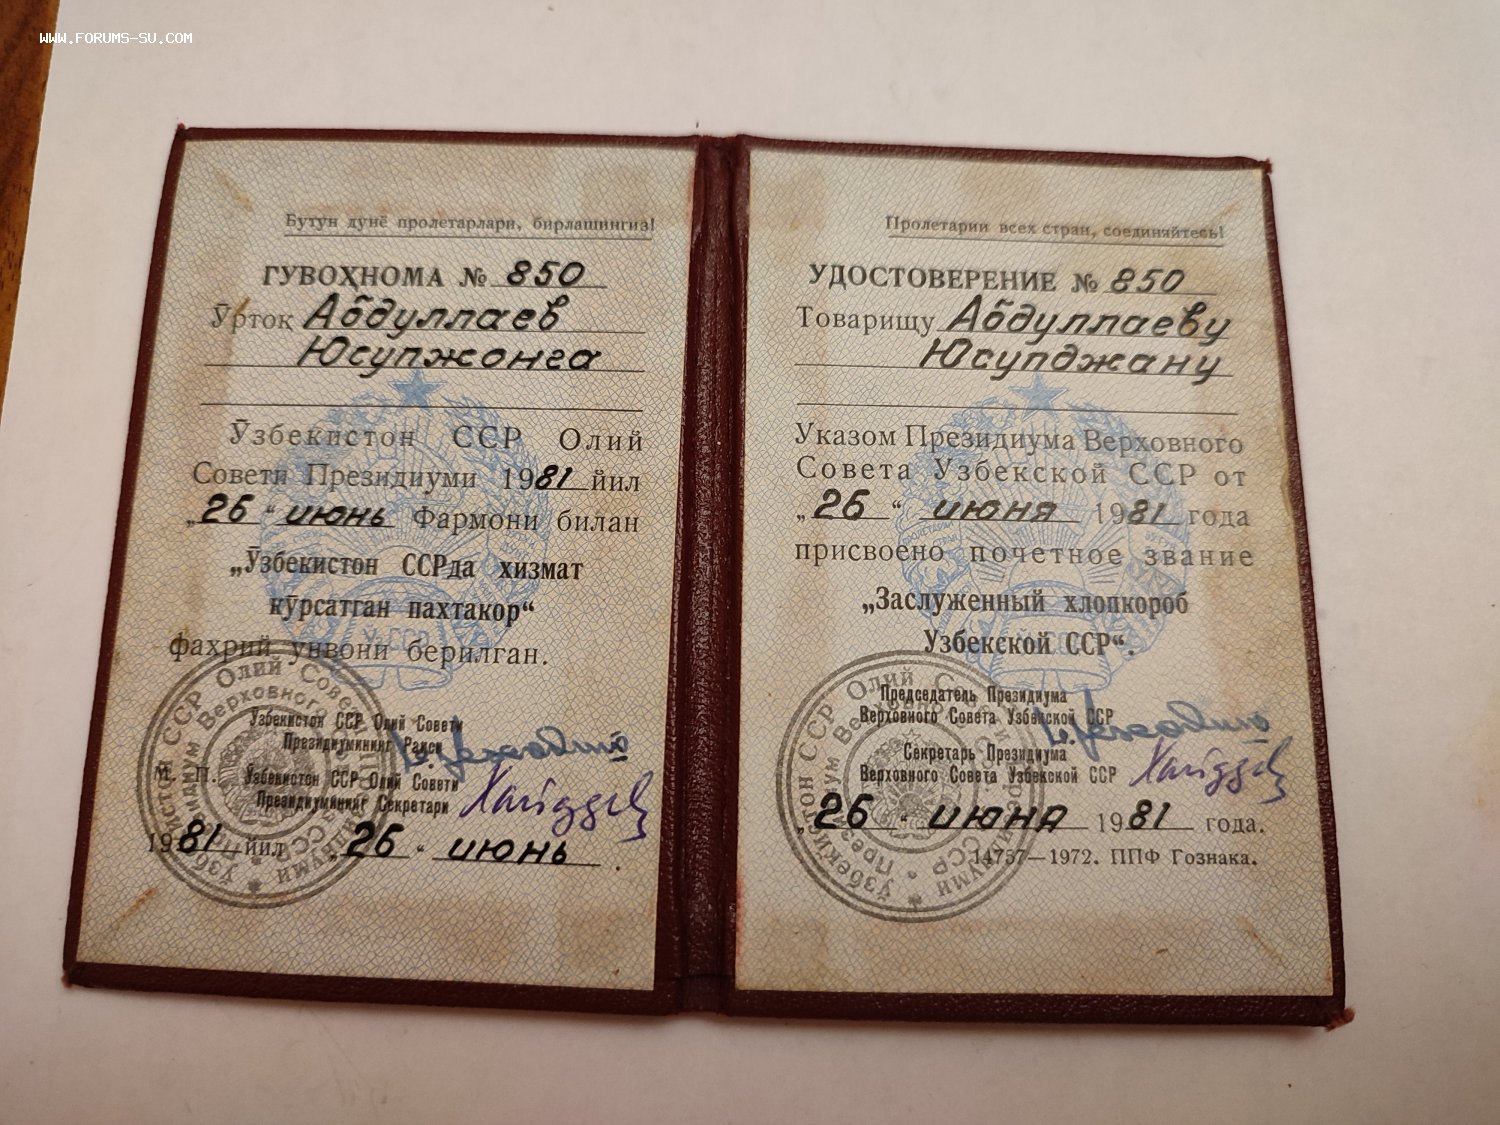 WWW.FORUMS-SU.COM
Бутун дунё пролетарлари, бирлашингиз!
ГУВОҲНОМА № 850
Ўртоқ Абдуллаев
Юсупжонга
Ўзбекистон ССР Олий
Совети Президиуми 1981 йил
„26“ июнь Фармони билан
„Ўзбекистон ССРда хизмат
кўрсатган пахтакор“
фахрий унвони берилган.
Ўзбекистон ССР Олий Совети
Президиумининг Раиси
М. П. Ўзбекистон ССР Олий Совети
Президиумининг Секретари
1981 йил „26“ июнь.
Пролетарии всех стран, соединяйтесь!
УДОСТОВЕРЕНИЕ № 850
Товарищу Абдуллаеву
Юсупджану
Указом Президиума Верховного
Совета Узбекской ССР от
„26“ июня 1981 года
присвоено почетное звание
„Заслуженный хлопкороб
Узбекской ССР“.
Председатель Президиума
Верховного Совета Узбекской ССР
Секретарь Президиума
Верховного Совета Узбекской ССР
„26“ июня 1981 года.
14757—1972. ППФ Гознака.